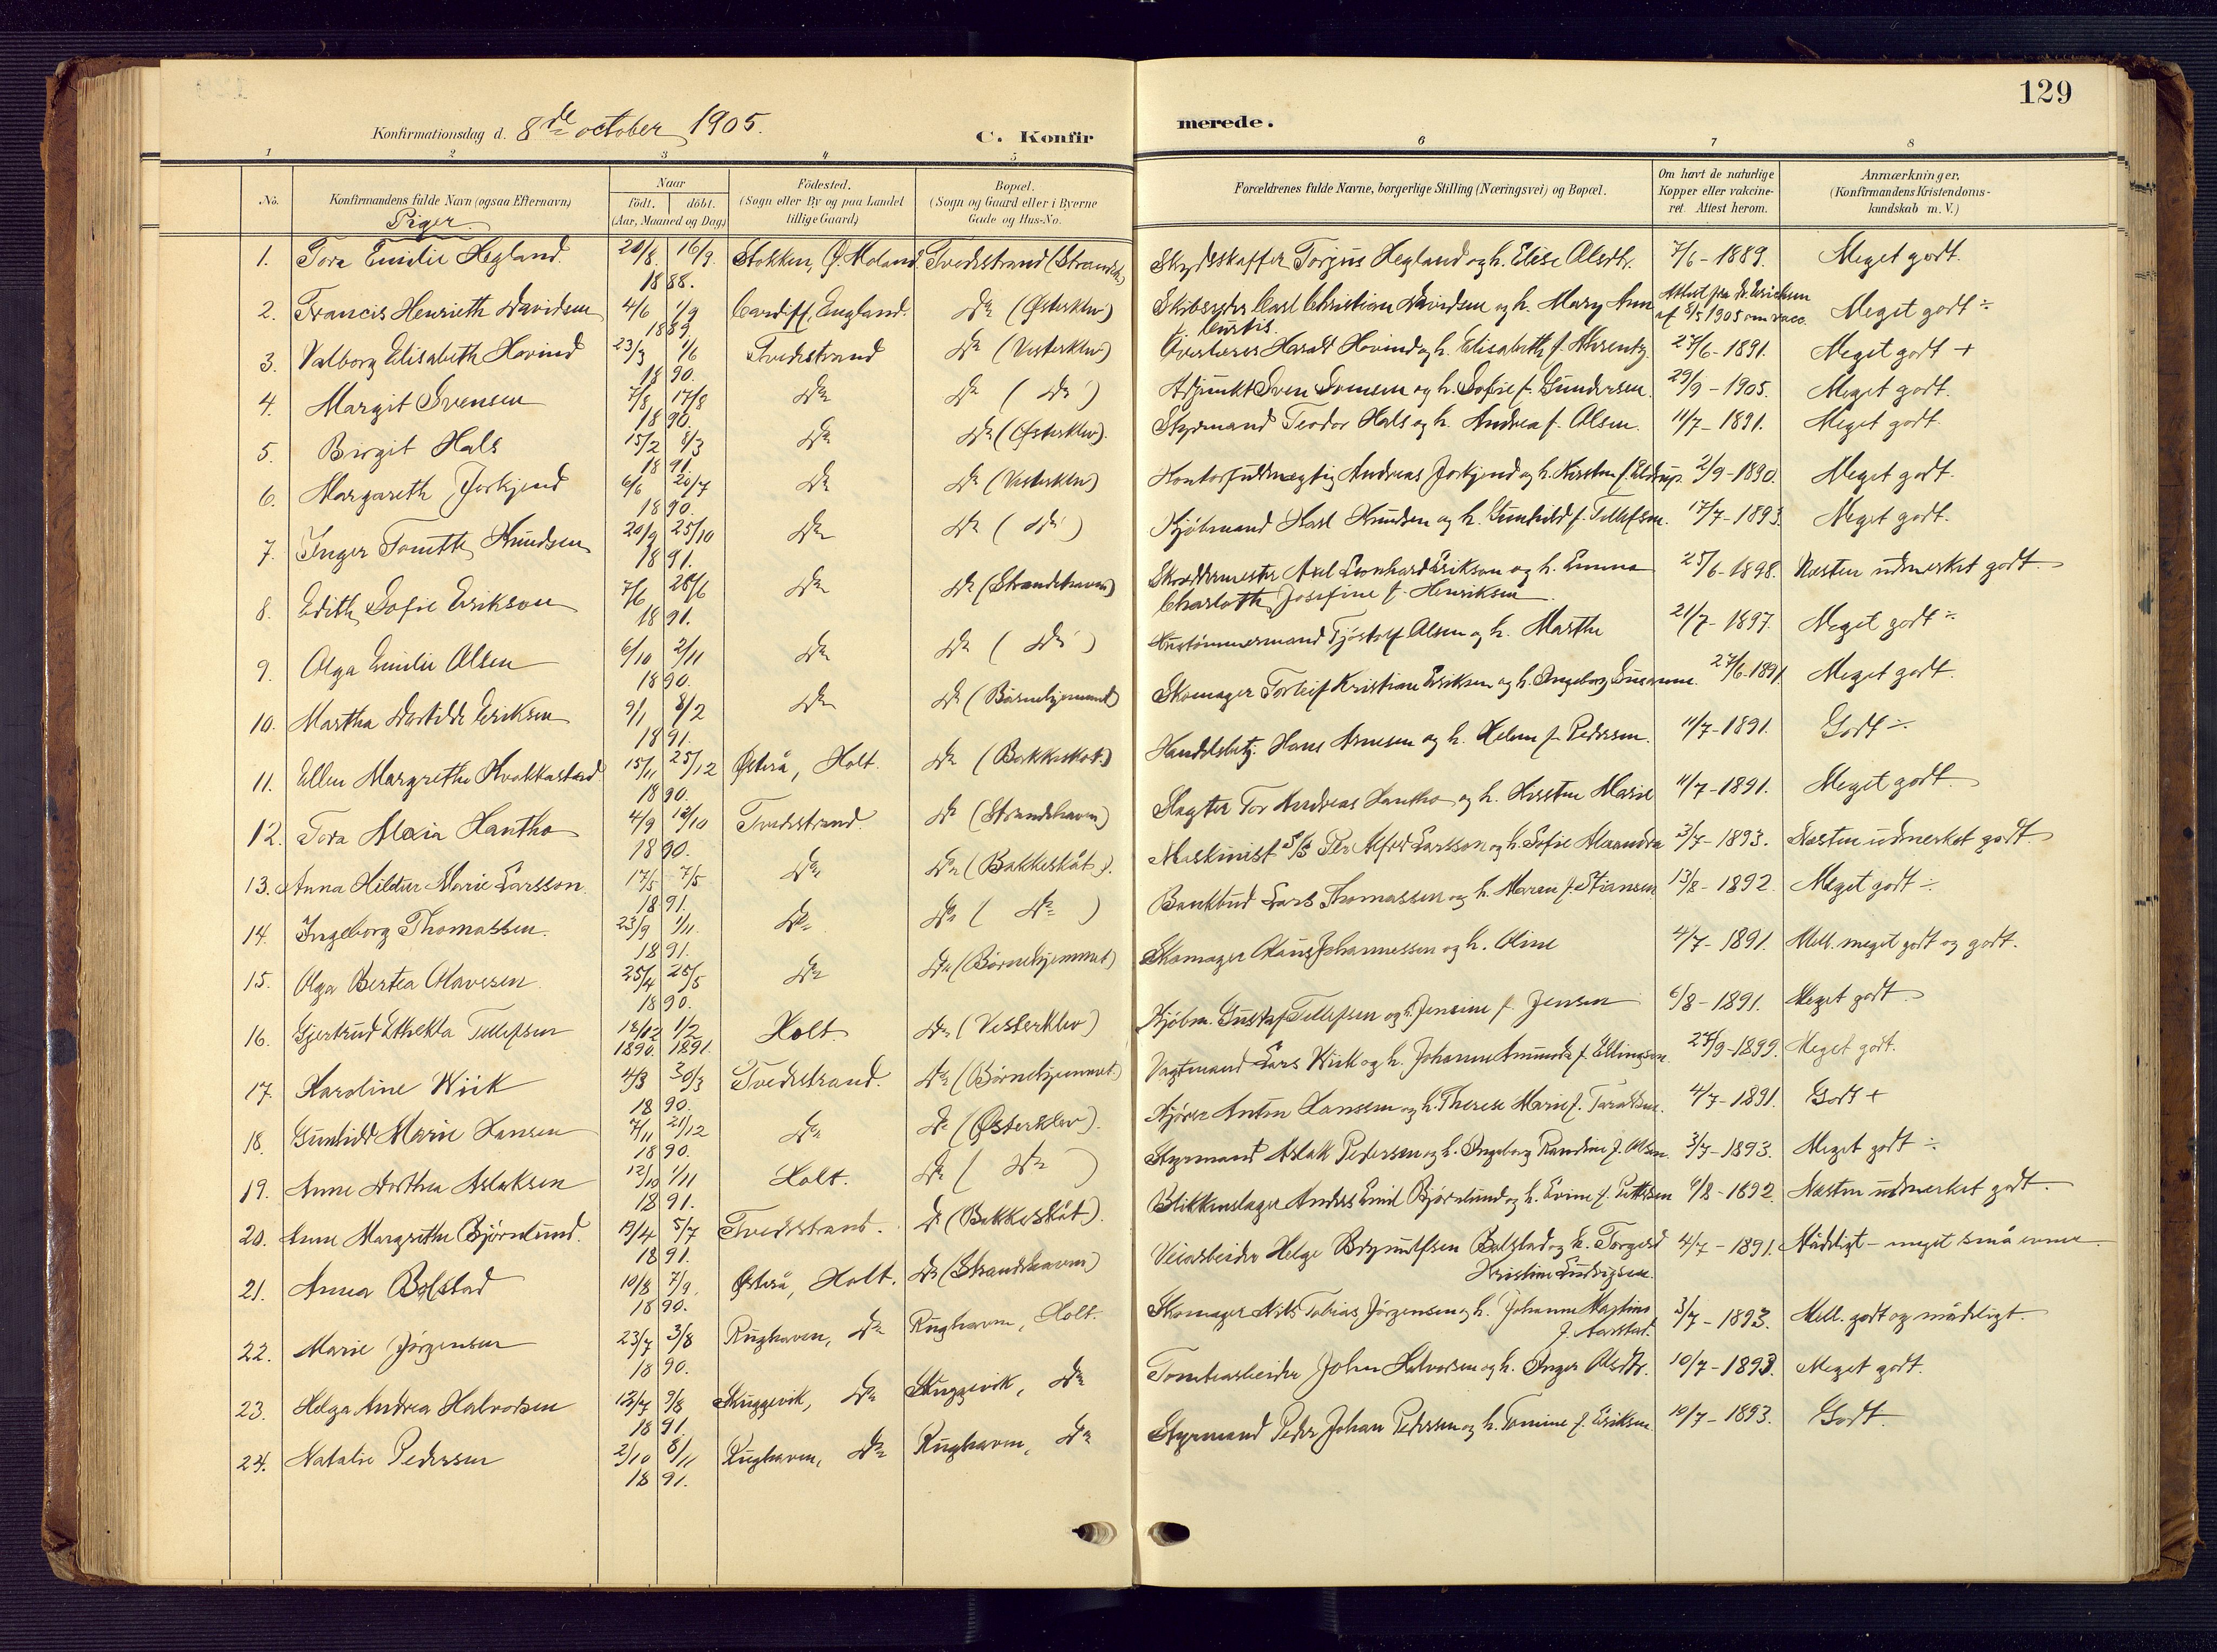 129
Konfirmationsdag d. 8de october 1905.
C. Konfirmerede.
1 2 3 4 5 6 7 8
No. Konfirmandens fulde Navn (ogsaa Efternavn) Naar født. døbt. (Aar, Maaned og Dag) Födested. (Sogn eller By og paa Landet tillige Gaard) Bopæl. (Sogn og Gaard eller i Byerne Gade og Hus-No. Forældrenes fulde Navne, borgerlige Stilling (Næringsvei) og Bopæl. Om havt de naturlige Kopper eller vakcineret. Attest herom. Anmærkninger. (Konfirmandens Kristendomskundskab m. V.)
Piger
1. Tora Emilie Hegland. 20/8. 16/9. 1888. Stokken, Ø. Moland. Tvedestrand Skydsskaffer Torjus Hegland og h. Elise Olsdtr. 7/6 - 1889. Meget godt.
2. Francis Henrieth Davidsen 4/6 1/9 1889. Cardiff, England. Do (Østerklev) Carl Christian Davidsen og h. Mary Ann Curtis. Attest fra Dr. Erichsen af 8/5 1905 om vacc. Meget godt ÷
3. Valborg Elisabeth Hovind 23/3 1/6 1890. Tvedestrand Do (Vesterklev) Overlærer Harald Hovind og h. Elisabeth f. Ahrentz. 27/6 - 1891. Meget godt +
4. Margit Svensen 7/8 17/8 1890. Do Do ( Do ) Adjunkt Sven Svensen og h. Sofie f. Gundersen. 29/9 - 1905. Meget godt.
5. Birgit Hals 15/2 8/3 1891. Do Do (Østerklev). Styrmand Teodor Hals og h. Andrea f. Olsen. 11/7 - 1891. Meget godt.
6. Margareth Jorkjend 6/6 20/7 1890. Do Do (Vesterklev) Kontorfuldmægtig Andreas Jorkjend og h. Kirsten f. Eldrup. 2/9 - 1890. Meget godt.
7. Inger Tomtte Knudsen 20/9 25/10 1891. Do Do ( Do ) Kjøbmand Karl Knudsen og h. Gunhild f. Tellefsen. 17/7 - 1893. Meget godt.
8. Edith Sofie Erikson 7/6 28/6 1891. Do Do (Strandehaven) Skræddermester Axel Leonhard Erikson og h. Emma Charlotte Josefine f. Henriksen. 25/6 - 1898. Næsten udmerket godt.
9. Olga Emilie Olsen 6/10 2/11 1890. Do Do ( Do ) Hustømmermand Tjøstolf Olsen og h. Marthe 21/7 - 1897. Meget godt ÷
10. Martha Eriksen 9/1 8/2 1891. Do Do (Børnehjemmet) Skomager Torleif Kristian Eriksen og h. Ingeborg Susanne. 27/6 - 1891. Meget godt.
11. Ellen Margrethe 15/11 25/12 1890. Østerå, Holt. Do (Bakkeskåt.) Handelsbetj. Hans Arnesen og h. Helene f. Pedersen. 11/7 - 1891. Godt ÷
12. Tora Maria Hantho 4/9 12/10 1890. Tvedestrand. Do (Strandehaven) Slagter Tor Andreas Hantho og h. Kirstine Marie 11/7 - 1891. Meget godt.
13. Anna Hildur Marie Larsson. 17/5 7/5 1891. Do Do (Bakkeskåt). Maskinist S/S Per Alfred Larsson og h. Sofie Alexandra 3/7 - 1893. Næsten udmerket godt.
14. Ingeborg Thomassen. 23/9 1/11. 1891. Do Do ( Do ) Bankbud Lars Thomassen og h. Maren f. Stiansen 13/8 - 1892. Meget godt ÷
15. Olga Bertea Olavesen. 25/4 25/5 1890. Do Do (Børnehjemmet) Skomager Olaus Johannessen og h. Oline 4/7 - 1891. Mell. meget godt og godt.
16. Gjertrud Thekla Tellefsen 18/12 1/2 1890. 1891. Holt. Do (Vesterklev) Kjøbm. Gustaf Tellefsen og h. Jensine f. Jensen 6/8 - 1891. Meget godt
17. Karoline Wiik 4/3 30/3 1890. Tvedestrand. Do (Børnehjemmet) Vagtmand Lars Wiik og h. Johanne Amunda f. Ellingsen. 27/9 - 1899. Meget godt.
18. Gunhild Marie Hansen 7/11 21/12 1890. Do Do (Østerklev). Kjører Anton Hanssen og h. Therese Marie f. Taraldsen. 4/7 - 1891. Godt +
19. Anne Dorthea Aslaksen 12/10 1/11 1891. Holt. Do ( Do ) Styrmand Aslak Pedersen og h. Ingeborg Randine f. Olsen. 3/7 - 1893. Meget godt ÷
20. Anne Margrethe Bjørnlund. 19/4 5/7 1891. Tvedestrand. Do (Bakkeskåt). Blikkenslager Anders Emil Bjørnlund og h. Evine f. Pettersen 6/8 - 1892. Næsten udmerket godt.
21. Anna Bolstad 10/8 7/9. 1890. Østerå, Holt. Do (Strandehaven) Veiarbeider Helge Brynulfsen Bolstad og h. Torgerd Kristine Ludvigsen. 4/7 - 1891. Mådeligt - meget små evner
22. Marie Jørgensen 23/7 3/8 1890. Rughaven, Do Rughaven, Holt. Skomager Nils Tobias Jørgensen og h. Johanne Martine f. Aarstad. 3/7 - 1893. Mell. godt og mådeligt.
23. Helga Andrea Halvorsen 12/7 9/8 1891. Skuggevik, Do Skuggevik, Do Tomtearbeider John Halvorsen og h. Inger Olsdtr. 10/7 - 1893. Meget godt.
24. Natalie Pedersen 2/10 8/11 1891. Rughaven, Do Rughaven, Do Styrmand Peder Johan Pedersen og h. Tomine f. Eriksen 10/7 - 1893. Godt.